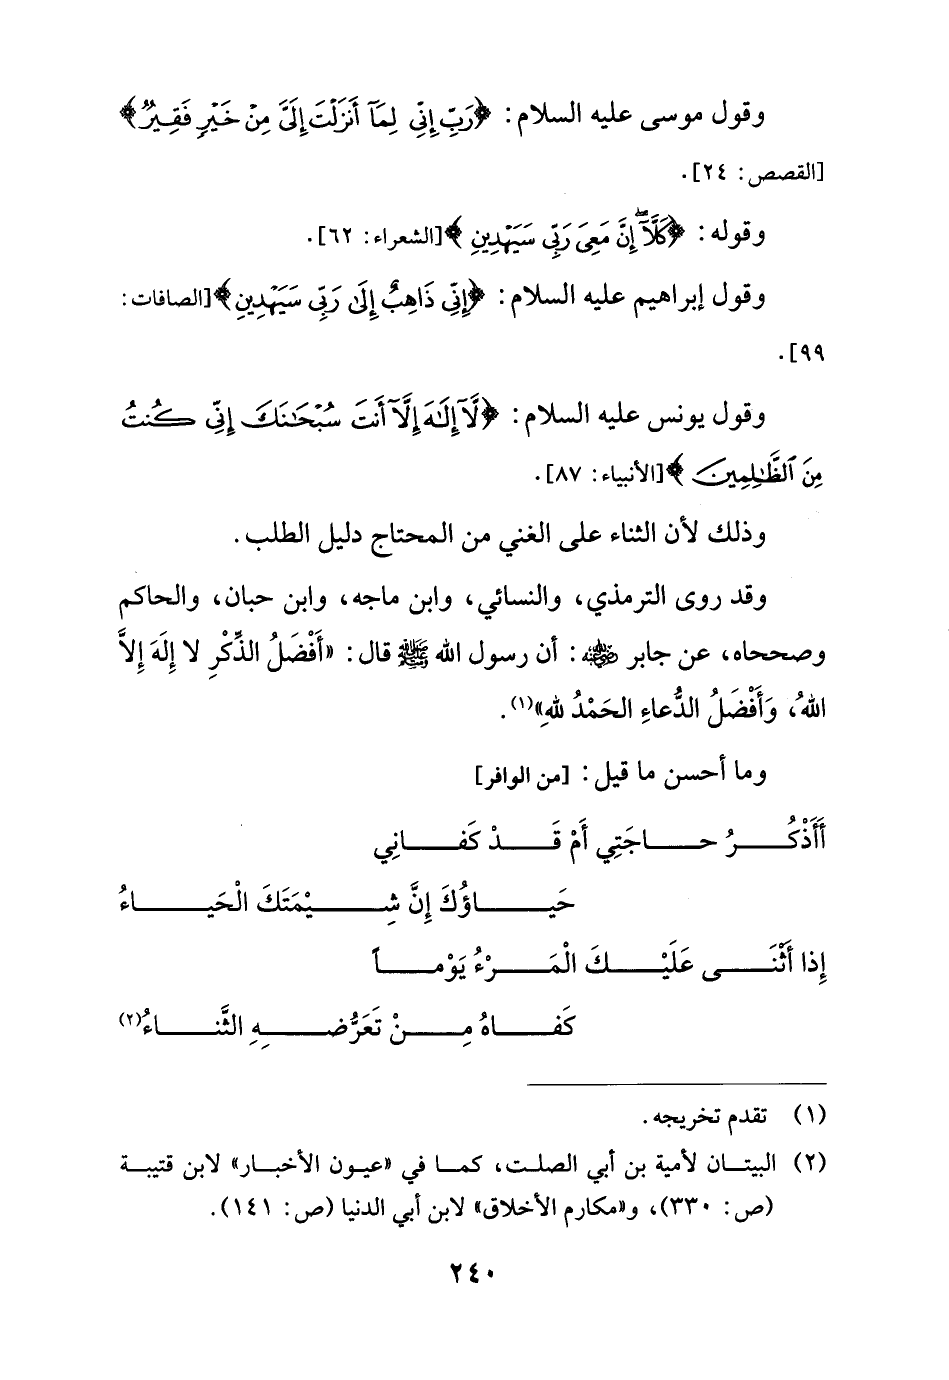 وقول موسى عليه السلام: ﴿رَبِّ إِنِّي لِمَآ أَنزَلْتَ إِلَيَّ مِنْ خَيْرٍ فَقِيرٌ﴾
[القصص: ٢٤].
وقوله: ﴿كَلَّآۖ إِنَّ مَعِيَ رَبِّي سَيَهْدِينِ﴾ [الشعراء: ٦٢].
وقول إبراهيم عليه السلام: ﴿إِنِّي ذَاهِبٌ إِلَىٰ رَبِّي سَيَهْدِينِ﴾ [الصافات:
٩٩].
وقول يونس عليه السلام: ﴿لَّآ إِلَٰهَ إِلَّآ أَنتَ سُبْحَٰنَكَ إِنِّي كُنتُ
مِنَ ٱلظَّٰلِمِينَ﴾ [الأنبياء: ٨٧].
وذلك لأن الثناء على الغني من المحتاج دليل الطلب.
وقد روى الترمذي، والنسائي، وابن ماجه، وابن حبان، والحاكم
وصححاه، عن جابر رضي الله عنه: أن رسول الله ﷺ قال: «أَفْضَلُ الذِّكْرِ لا إِلَهَ إِلاَّ
اللهُ، وَأَفْضَلُ الدُّعاءِ الحَمْدُ للهِ»(١).
وما أحسن ما قيل: [من الوافر]
أَأَذْكُرُ حاجَتِي أَمْ قَدْ كَفانِي
حَياؤُكَ إِنَّ شِيْمَتَكَ الْحَياءُ
إِذا أَثْنَى عَلَيْكَ الْمَرْءُ يَوْماً
كَفاهُ مِنْ تَعَرُّضِهِ الثَّناءُ(٢)
(١) تقدم تخريجه.
(٢) البيتان لأمية بن أبي الصلت، كما في «عيون الأخبار» لابن قتيبة
(ص: ٣٣٠)، و«مكارم الأخلاق» لابن أبي الدنيا (ص: ١٤١).
٢٤٠